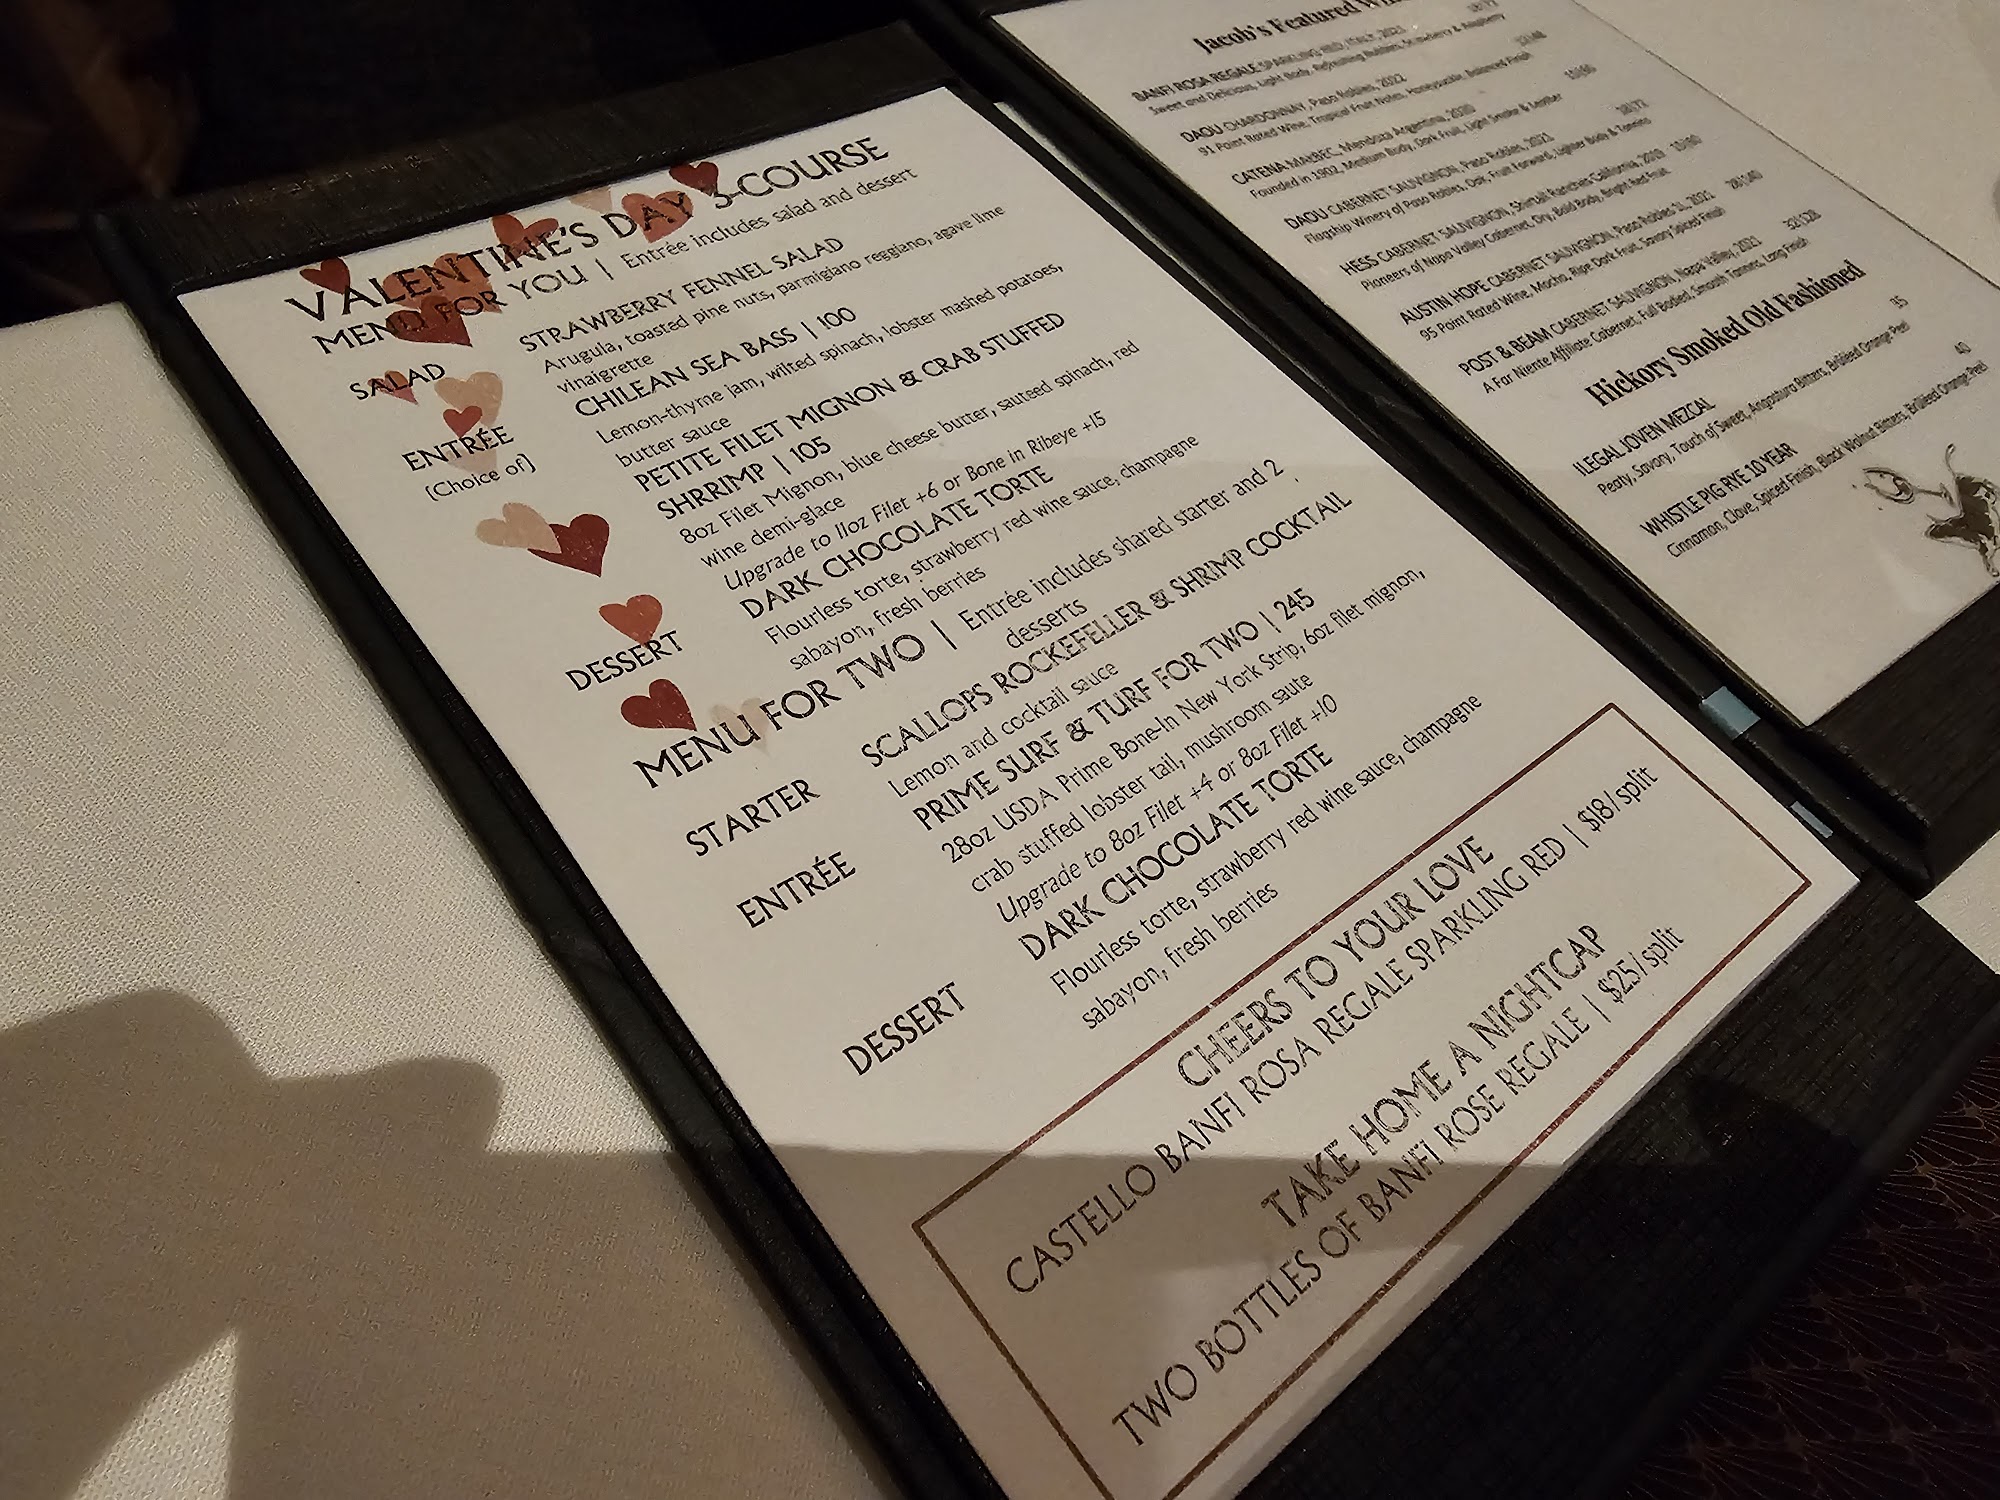 VALENTINE'S DAY 3-COURSE
MENU FOR YOU | Entrée includes salad and dessert
SALAD
STRAWBERRY FENNEL SALAD
Arugula, toasted pine nuts, parmigiano reggiano, agave lime
vinaigrette
ENTRÉE
(Choice of)
CHILEAN SEA BASS | 100
Lemon-thyme jam, wilted spinach, lobster mashed potatoes,
butter sauce
PETITE FILET MIGNON & CRAB STUFFED
SHRRIMP | 105
8oz Filet Mignon, blue cheese butter, sauteed spinach, red
wine demi-glace
Upgrade to 11oz Filet +6 or Bone in Ribeye +15
DESSERT
DARK CHOCOLATE TORTE
Flourless torte, strawberry red wine sauce, champagne
sabayon, fresh berries
MENU FOR TWO | Entrée includes shared starter and 2
desserts
STARTER
SCALLOPS ROCKEFELLER & SHRIMP COCKTAIL
Lemon and cocktail sauce
ENTRÉE
PRIME SURF & TURF FOR TWO | 245
28oz USDA Prime Bone-In New York Strip, 6oz filet mignon,
crab stuffed lobster tail, mushroom saute
Upgrade to 8oz Filet +4 or 8oz Filet +10
DESSERT
DARK CHOCOLATE TORTE
Flourless torte, strawberry red wine sauce, champagne
sabayon, fresh berries
CHEERS TO YOUR LOVE
CASTELLO BANFI ROSA REGALE SPARKLING RED | $18/split
TAKE HOME A NIGHTCAP
TWO BOTTLES OF BANFI ROSE REGALE | $25/split
Jacob's Featured
BANFI ROSA REGALE SPARKLING RED, ITALY, 2021
Sweet and Delicious, Light Body, Refreshing Bubbles, Strawberry & Raspberry
DAOU CHARDONNAY, Paso Robles, 2022
91 Point Rated Wine, Tropical Fruit Notes, Honeysuckle, Balanced Finish
CATENA MALBEC, Mendoza Argentina, 2020
Founded in 1902, Medium Body, Dark Fruit, Light Smoke & Leather
DAOU CABERNET SAUVIGNON, Paso Robles, 2021
Flagship Winery of Paso Robles, Fruit Forward, Lighter Body & Tannins
HESS CABERNET SAUVIGNON, Shirtail Ranches California, 2019
Pioneers of Napa Valley Cabernet, Dry, Bold Body, Bright Red Fruit
AUSTIN HOPE CABERNET SAUVIGNON, Paso Robles 1L, 2021
95 Point Rated Wine, Mocha, Ripe Dark Fruit, Savory Spiced Finish
POST & BEAM CABERNET SAUVIGNON, Napa Valley, 2021
A Far Niente Affiliate Cabernet, Full Bodied, Smooth Tannins, Long Finish
Hickory Smoked Old Fashioned
ILEGAL JOVEN MEZCAL 35
Peaty, Savory, Touch of Sweet, Angostura Bitters, Brûléed Orange Peel
WHISTLE PIG RYE 10 YEAR 40
Cinnamon, Clove, Spiced Finish, Black Walnut Bitters, Brûléed Orange Peel